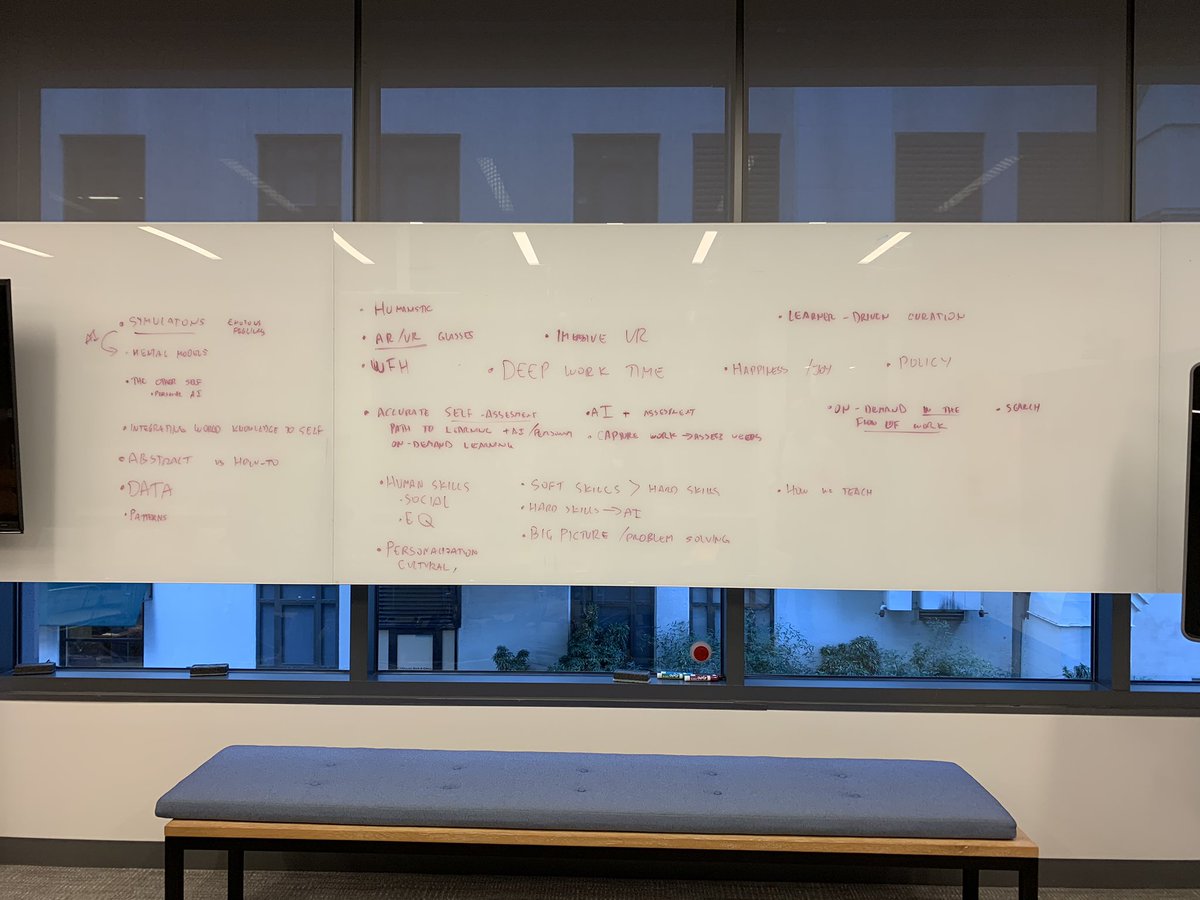 • SYMULATONS EMOTIONS
FEELINGS
• MENTAL MODELS
• THE OTHER SELF
• PERSONAL AI
• INTEGRATING WORLD KNOWLEDGE TO SELF
• ABSTRACT VS HOW-TO
• DATA
• PATTERNS
• HUMANISTIC
• AR/VR GLASSES
• IMMERSIVE VR
• LEARNER-DRIVEN CURATION
• WFH
• DEEP WORK TIME
• HAPPINESS /JOY
• POLICY
• ACCURATE SELF-ASSESMENT
PATH TO LEARNING +AI/PERSONA
ON-DEMAND LEARNING
• AI + ASSESSMENT
• CAPTURE WORK → ASSESS NEEDS
• ON-DEMAND IN THE
FLOW OF WORK
• SEARCH
• HUMAN SKILLS
• SOCIAL
• EQ
• PERSONALIZATION
CULTURAL,
• SOFT SKILLS > HARD SKILLS
• HARD SKILLS → AI
• BIG PICTURE /PROBLEM SOLVING
• HOW WE TEACH